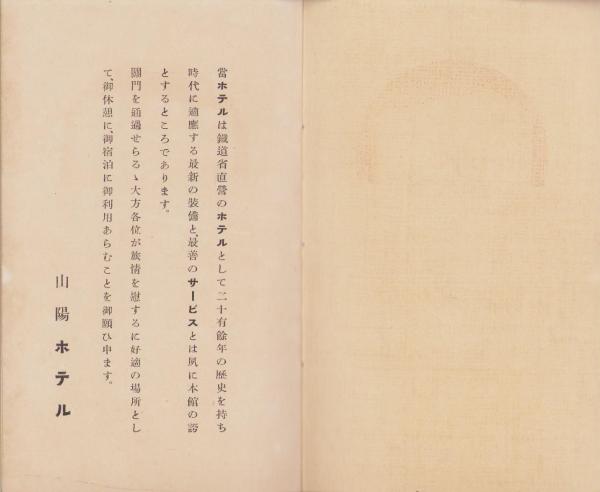 當ホテルは鐵道省直營のホテルとして二十有餘年の歷史を持ち
時代に適應する最新の裝備と、最善のサービスとは夙に本館の誇
とするところであります。
關門を通過せらるゝ大方各位が旅情を慰するに好適の場所とし
て、御休憩に、御宿泊に御利用あらむことを御願ひ申ます。
山陽ホテル